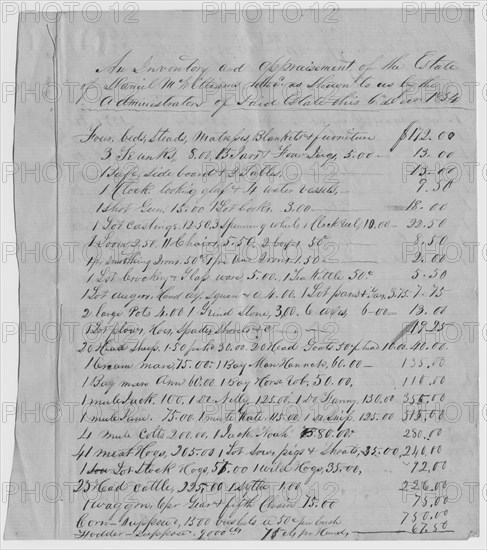 An Inventory and Appraisement of the Estate
of Daniel Mc Decd as Shown to us by the
Administrator of Said Estate this 6 1854
Four beds, Steads, Matress, Blankets & furniture $142.00
3 Trunks, 8.00, 15 Jars & Four Jugs, 5.00 — 13.00
1 Safe, side board & 2 Tables — 13.00
1 Clock looking glass & 4 water vessels — 7.50
1 Shot Gun, 15.00 1 Lot books, 3.00 — 18.00
1 Lot Castings, 12.50, 3 Spinning wheels & Clock reel, 10.00 — 22.50
1 Loom 2.50, 11 Chairs, 5.50, 2 50c — 8.50
Smoothing Irons, 50c 1 pr And Irons, 1.50 — 2.00
1 Lot Crockery & Glass ware, 5.00, 1 Tea Kettle 50c — 5.50
1 Lot augers, Hand Square & c 4.00, 1 Lot 3.75 7.75
2 large Pots 4.00, 1 Grind Stone, 3.00, 6 axes, 6.00 — 13.00
1 Lot plows, Hoes, Spades, Shovels & c 19.25
20 Head Sheep, 1.50 30.00, 20 Head Goats 50c 10.00 40.00
1 Cream mare, 75.00, 1 Bay Mare Hannah, 60.00 — 135.00
1 Bay mare Ann 60.00, 1 Bay Horse Bob, 50.00, 110.00
1 mule Jack, 100, 1 Do Nelly, 125.00, 1 Do Fanny, 130.00 355.00
1 mule Jane, 75.00, 1 mule Kate, 115.00, 1 Do 125.00 315.00
4 Mule Colts, 200.00, 1 Jack Noah 80.00 280.00
41 meat Hogs, 205.00 1 Lot Sows, pigs & Shoats, 35.00, 240.00
1 Lot Stock Hogs, 1 wild Hogs, 35.00, 92.00
25 Head cattle, 225.00, 1 1.00 226.00
1 Waggon, Gear & fifth Chain 75.00 75.00
Corn Suppose, 1500 bushels a 50c per bush 750.00
Fodder Suppose 9000 lbs 75 cts per Hundred 67.50